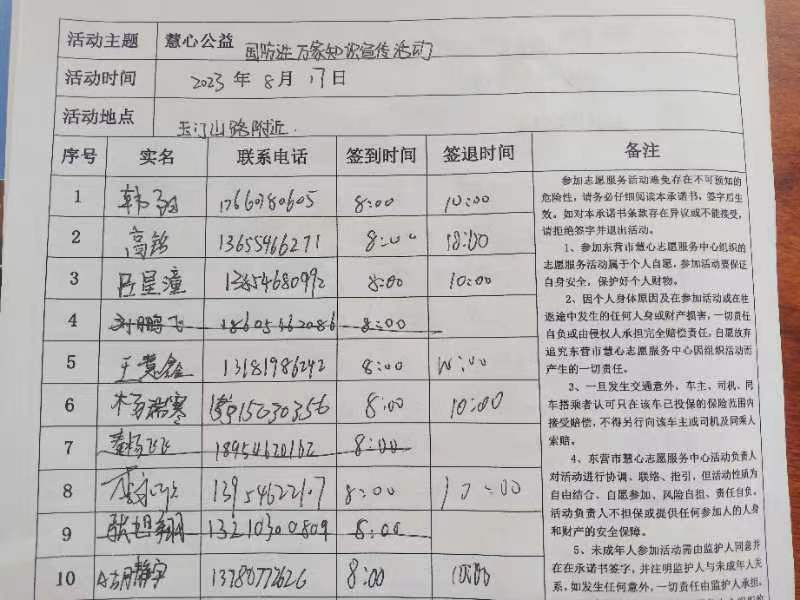 活动主题 慧心公益 国防进万家知识宣传活动
活动时间 2023 年 8 月 17 日
活动地点 玉门山路附近
序号 实名 联系电话 签到时间 签退时间 备注
1 韩 17661780605 8:00 10:00
2 高 13655466271 8:00 10:00
3 吕星潼 13854680992 8:00 10:00
4 刘鹏飞 18605462086 8:00
5 王慧鑫 13181986242 8:00 10:00
6 杨瑞寒 15615030356 8:00 10:00
7 杨飞飞 18954620162 8:00
8 8:00 10:00
9 张旭翔 13210300809 8:00
10 胡静宇 8:00 10:00
参加志愿服务活动难免存在不可预知的
危险性，请务必仔细阅读本承诺书，签字后生
效。如对本承诺书条款存在异议或不能接受，
请拒绝签字并退出活动。
1、参加东营市慧心志愿服务中心组织的
志愿服务活动属于个人自愿，参加活动要保证
自身安全，保护好个人财物。
2、因个人身体原因及在参加活动或在往
返途中发生的任何人身或财产损害，一切责任
自负或由侵权人承担完全赔偿责任，自愿放弃
追究东营市慧心志愿服务中心因组织活动而
产生的一切责任。
3、一旦发生交通意外，车主、司机、同
车搭乘者认可只在该车已投保的保险范围内
接受赔偿，不得另行向该车主或司机及同乘人
索赔。
4、东营市慧心志愿服务中心活动负责人
对活动进行协调、联络、指引，但活动性质为
自由结合、自愿参加、风险自担、责任自负，
活动负责人不担保或提供任何参加人的人身
和财产的安全保障。
5、未成年人参加活动需由监护人同意并
在在承诺书签字，并注明监护人与未成年人关
系，如发生任何意外，一切责任由监护人承担，